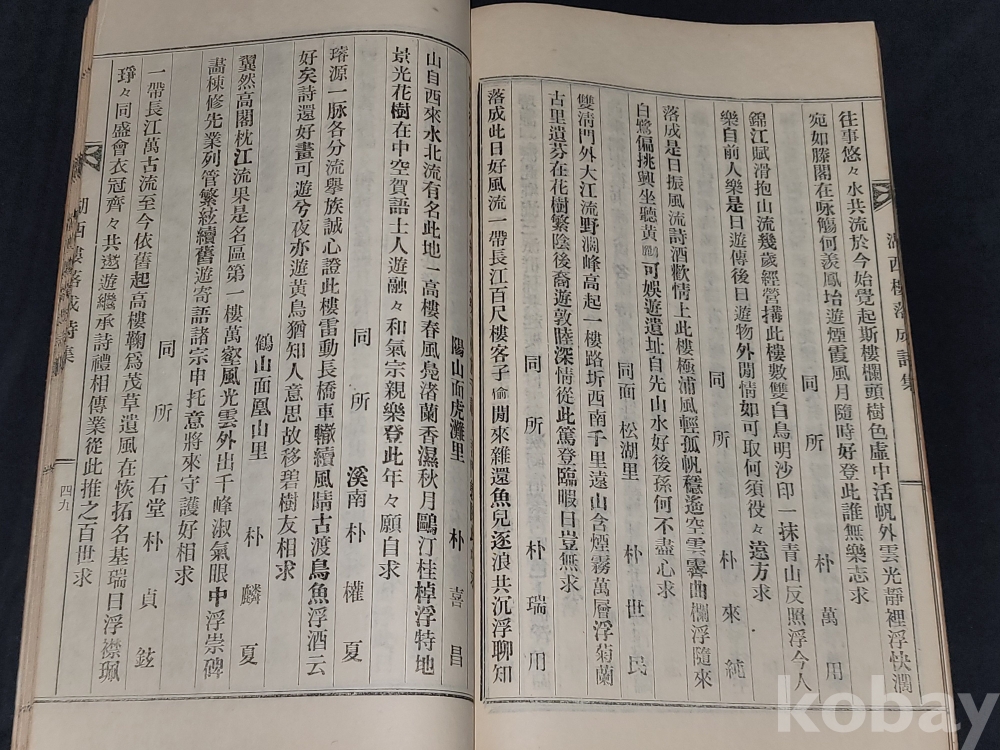 湖西樓落成詩集
往事悠々水共流於今始覺起斯樓欄頭樹色虛中活帆外雲光靜裡浮快濶
宛如滕閣在一咏觴何羨鳳坮遊煙霞風月隨時好登此誰無樂志求
同所 朴萬用
錦江賦滑抱山流幾歲經營搆此樓數雙白鳥明沙印一抹青山反照浮今人
樂自前人樂是日遊傳後日遊物外閒情如可取何須役々遠方求
同所 朴來純
落成是日振風流詩酒歡情上此樓極浦風輕孤帆穩遙空雲霽曲欄浮隨來
白鷺偏挑興坐聽黃可娛遊遣址自先山水好後孫何不盡心求
同面松湖里 朴世民
雙淸門外大江流野濶峰高起一樓路圻西南千里遠山含煙霧萬層浮菊蘭
古里遺芬在花樹繁陰後裔遊敦睦深情從此篤登臨暇日豈無求
同所 朴瑞用
落成此日好風流一帶長江百尺樓客子偷閒來雜還魚兒逐浪共沉浮聊知
陽山面虎灘里 朴喜昌
山自西來水北流有名此地一高樓春風鳧渚蘭香濕秋月鷗汀桂棹浮特地
景光花樹在中空賀語士人遊融々和氣宗親樂登此年々願自求
同所 溪南朴權夏
璿源一脉各分流擧族誠心證此樓雷動長橋車轍續風晴古渡鳥魚浮酒云
好矣詩還好畫可遊兮夜亦遊黃鳥猶知人意思故移碧樹友相求
鶴山面凰山里 朴麟夏
翼然高閣枕江流果是名區第一樓萬壑風光雲外出千峰淑氣眼中浮崇碑
畵棟修先業列管繁絃續舊遊寄語諸宗申托意將來守護好相求
同所 石堂朴貞鉉
一帶長江萬古流至今依舊起高樓鞠爲茂草遺風在恢拓名基瑞日浮襟珮
琤々同盛會衣冠齊々共遨遊繼承詩禮相傳業從此推之百世求
湖西樓落成詩集
四九
kobay